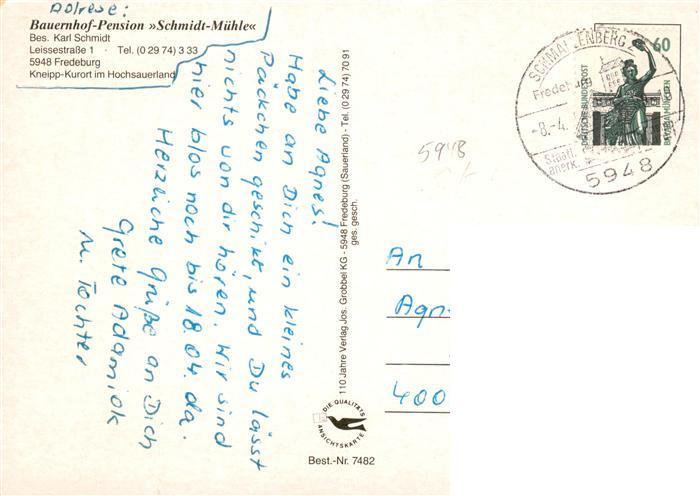 Adresse:
Bauernhof-Pension »Schmidt-Mühle«
Bes. Karl Schmidt
Leissestraße 1 · Tel. (0 29 74) 3 33
5948 Fredeburg
Kneipp-Kurort im Hochsauerland
Liebe Agnes!
Habe an Dich ein kleines
Päckchen geschikt, und Du lässt
nichts von dir hören. Wir sind
hier blos noch bis 18.04. da.
Herzliche Grüße an Dich
Grete Adamiok
u. Tochter
110 Jahre Verlag Jos. Grobbel KG - 5948 Fredeburg (Sauerland) - Tel. (0 29 74) 70 91
ges. gesch.
DIE QUALITÄTS
ANSICHTSKARTE
Best.-Nr. 7482
SCHMALLENBERG 2
Fredeburg
-8.-4.
Staatl.
anerk.
5948
60
DEUTSCHE BUNDESPOST
BAVARIA MÜNCHEN
5948
An
Agn
400